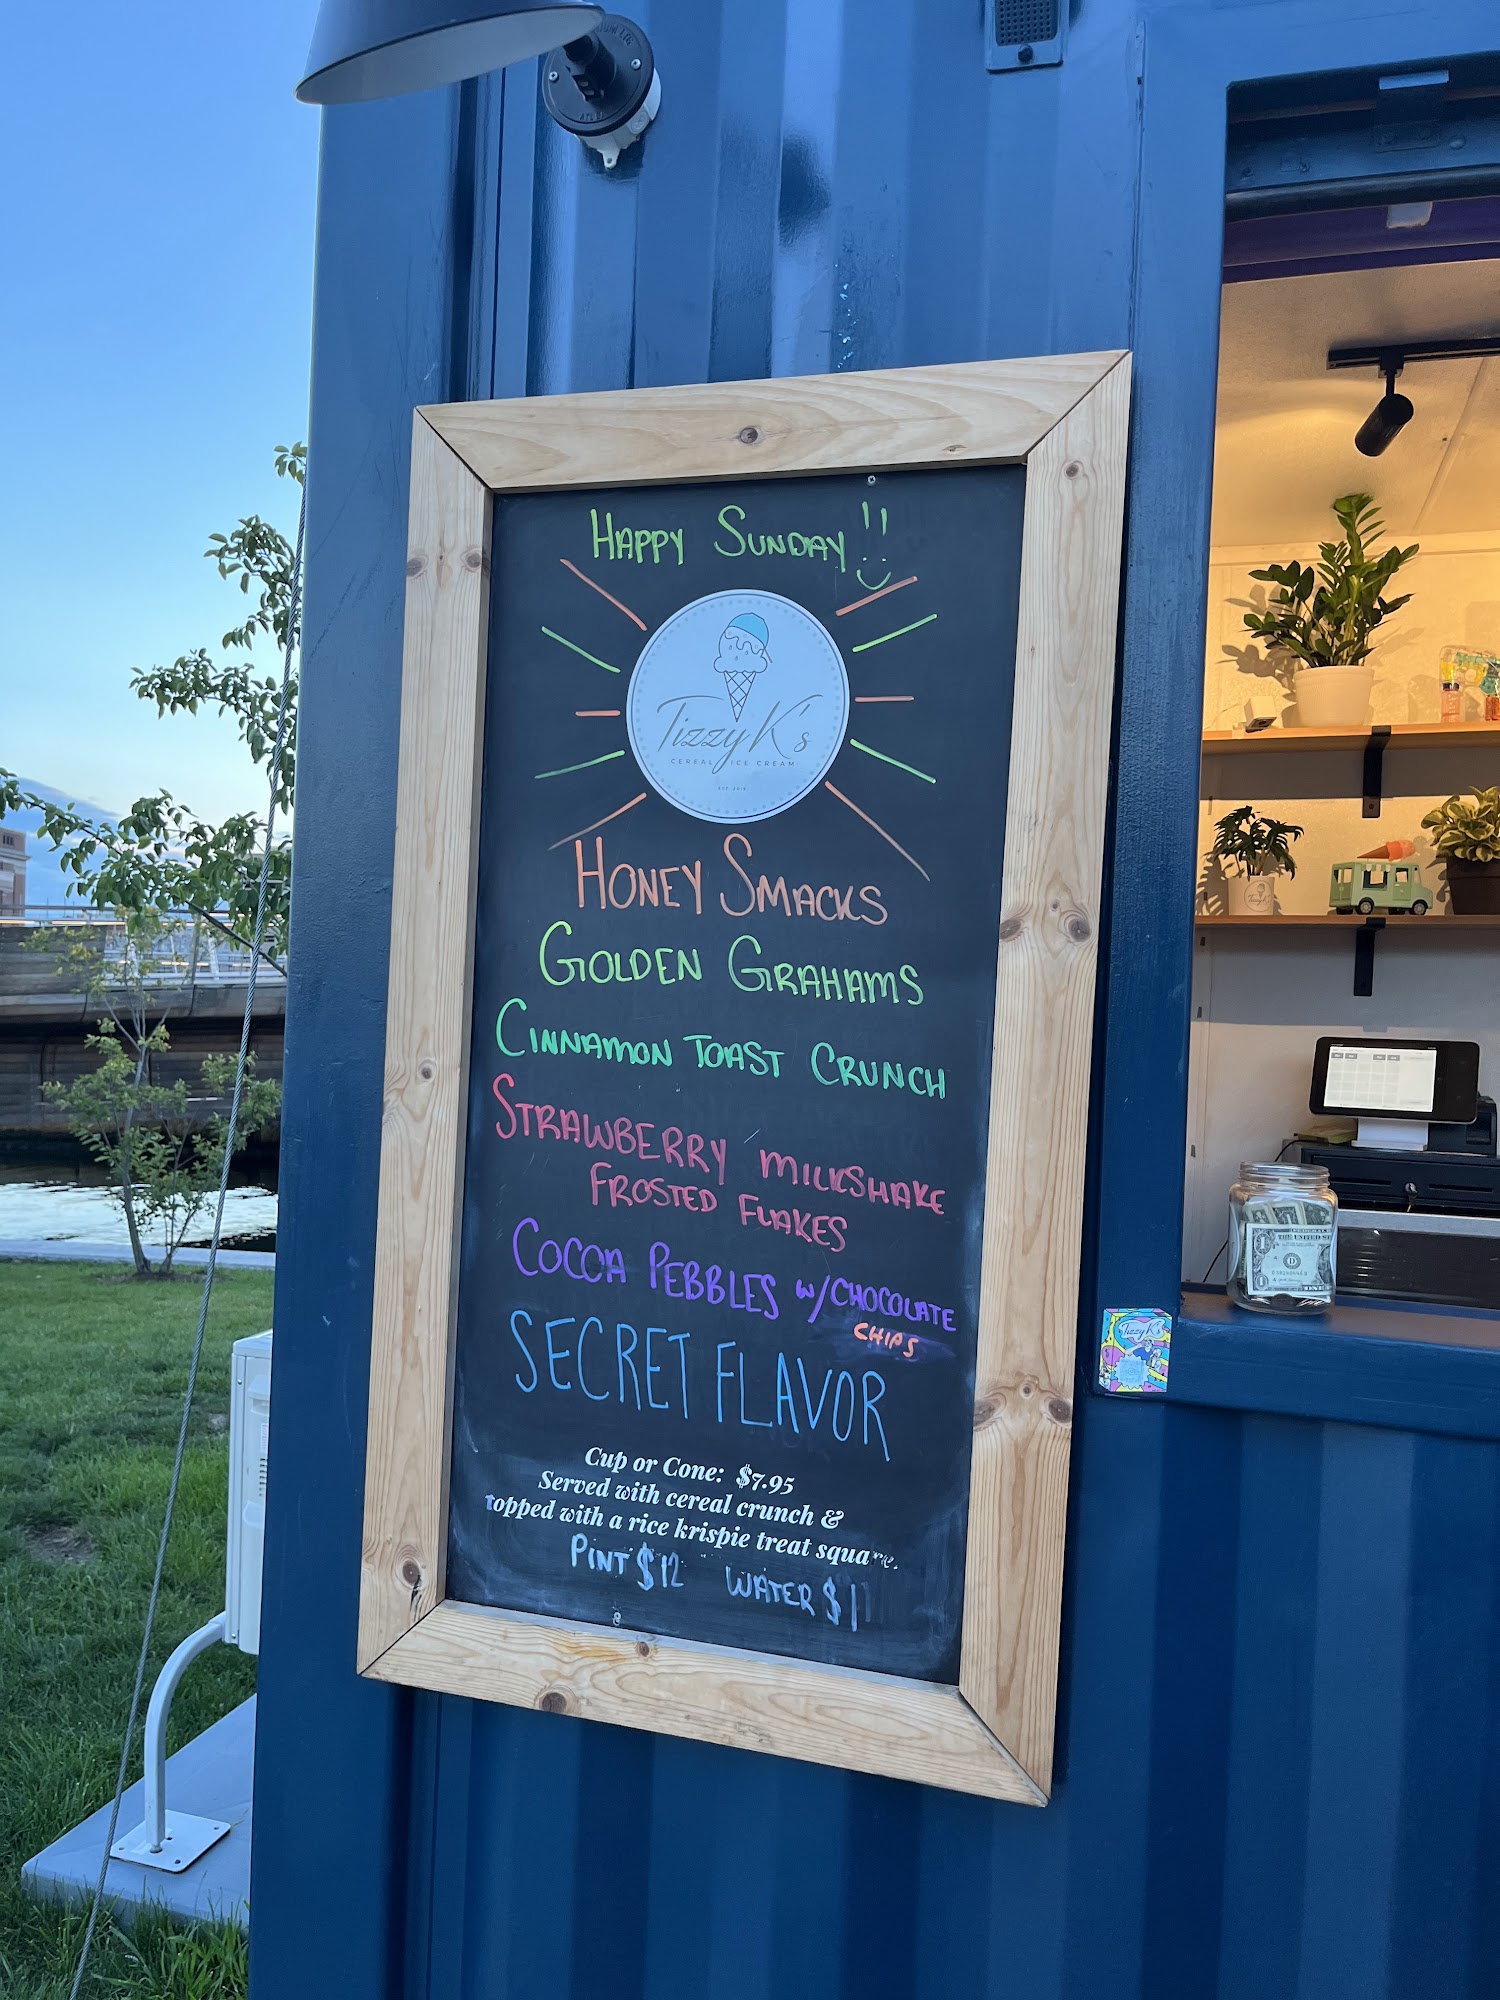 Happy Sunday!!
Tizzy K's
CEREAL ICE CREAM
Honey Smacks
Golden Grahams
Cinnamon Toast Crunch
Strawberry Milkshake
Frosted Flakes
Cocoa Pebbles w/ Chocolate
Chips
SECRET FLAVOR
Cup or Cone: $7.95
Served with cereal crunch &
topped with a rice krispie treat square.
Pint $12 Water $1
Tizzy K's